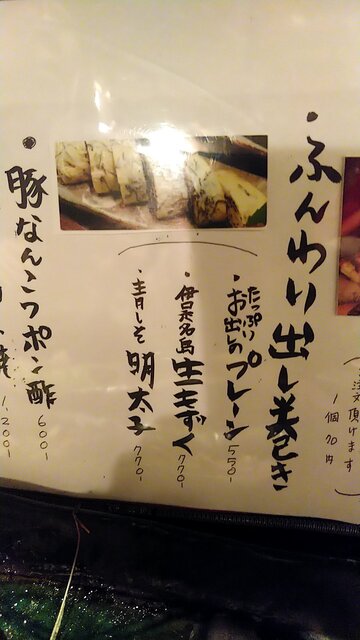 注文頂けます
1個70円
・ふんわり出し巻き
・たっぷりお出しのプレーン 550-
・伊是名島生もずく 770-
・青じそ明太子 770-
・豚なんこつポン酢 600-
1,200-